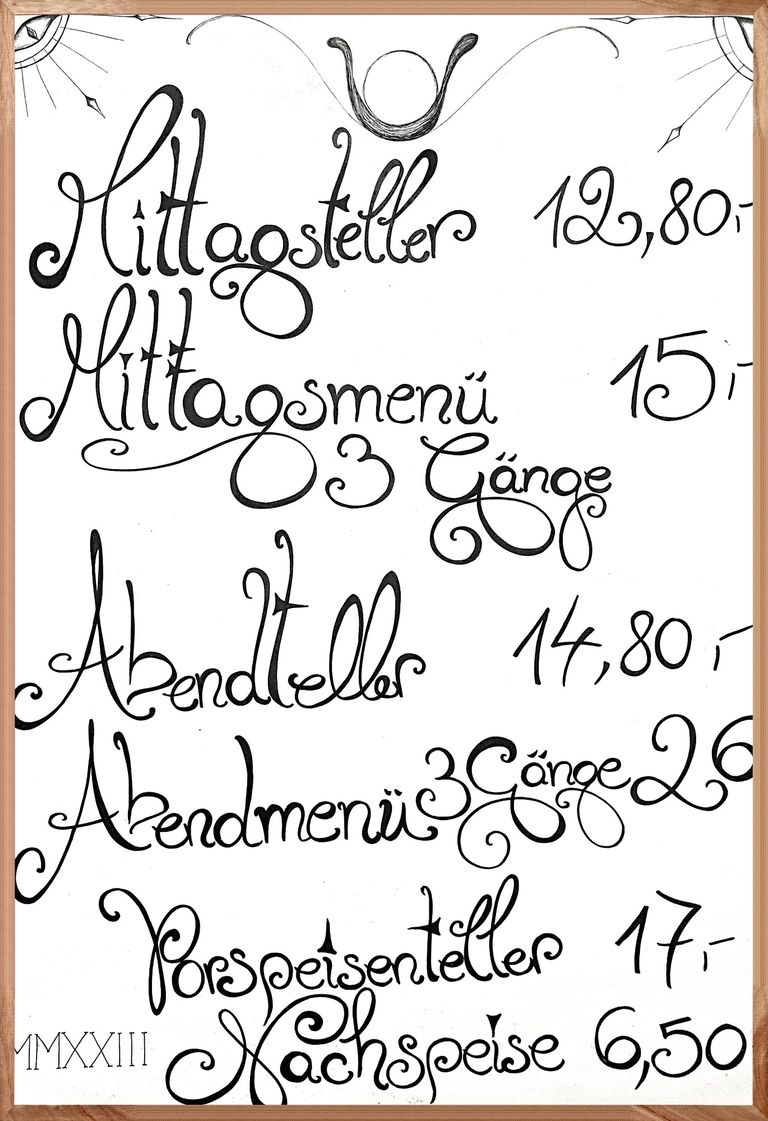 Mittagsteller 12,80,-
Mittagsmenü 15,-
3 Gänge
Abendteller 14,80,-
Abendmenü 3 Gänge 26
Vorspeisenteller 17,-
Nachspeise 6,50
MMXXIII